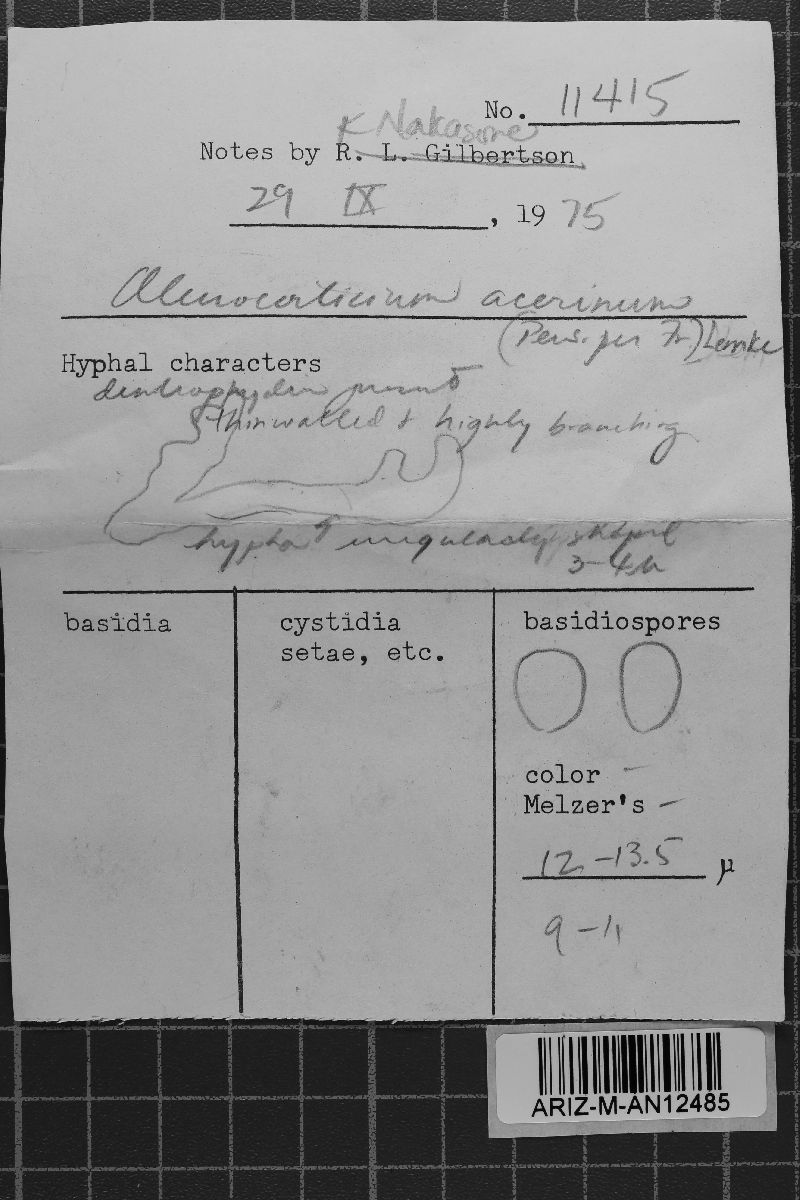 No. 11415
K Nakasone
Notes by R. L. Gilbertson
29 IX, 1975
Aleurocorticium acerinum
(Pers. per Fr.) Lemke
Hyphal characters
thinwalled & highly branching
hypha irregularly shaped
3-4µ
basidia
cystidia
setae, etc.
basidiospores
color -
Melzer's -
12-13.5 µ
9-11
ARIZ-M-AN12485